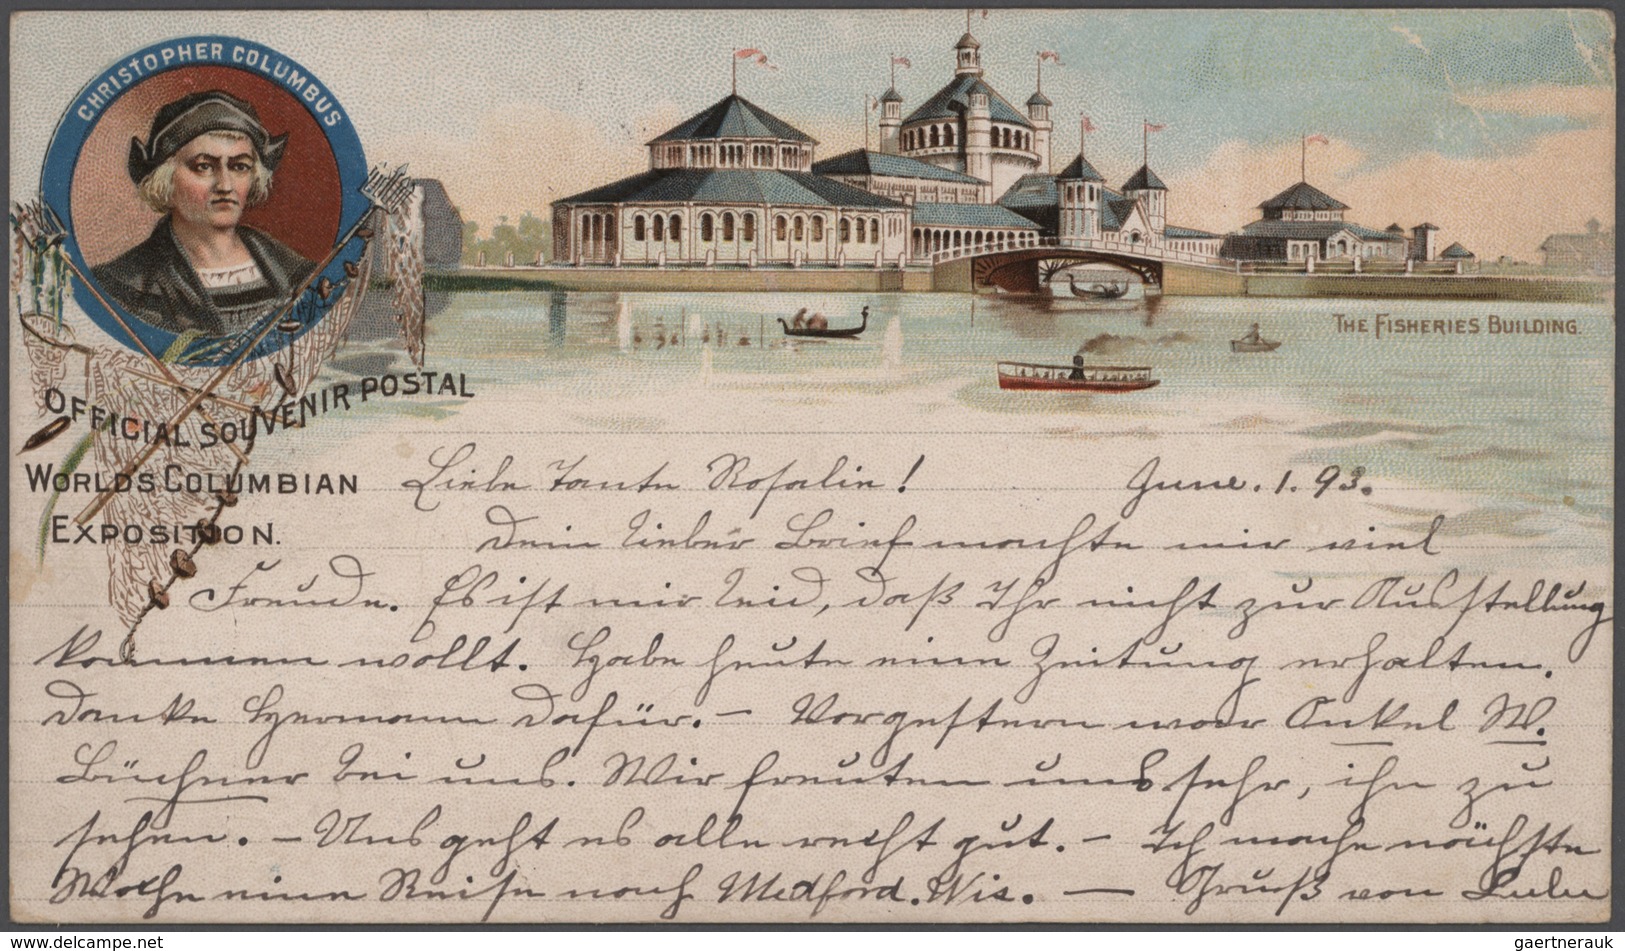 CHRISTOPHER COLUMBUS
THE FISHERIES BUILDING.
OFFICIAL SOUVENIR POSTAL
WORLDS COLUMBIAN
EXPOSITION.
Liebe Tante Rosalie! June. 1. 93.
Dein lieber Brief machte mir viel
Freude. Es ist mir leid, daß Ihr nicht zur Ausstellung
kommen wollt. Habe heute eine Zeitung erhalten.
Danke Hermann dafür. – Vorgestern war Onkel W.
Büchner bei uns. Wir freuten uns sehr, ihn zu
sehen. – Uns geht es alle recht gut. – Ich mache nächste
Woche eine Reise nach Medford. Wis. — Gruß von Lulu
delcampe.net
gaertnerauk